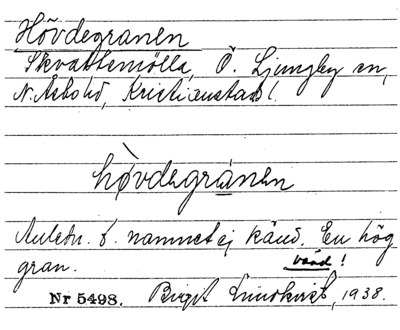 Hövdegranen
Skvattemölla, Ö. Ljungby sn,
N. Åsbo hd, Kristianstads l.
hø̀vdegránen
Anledn. t. namnet ej känd. En hög
gran. vård!
Nr 5493. Birgit Lindkvist, 1938.